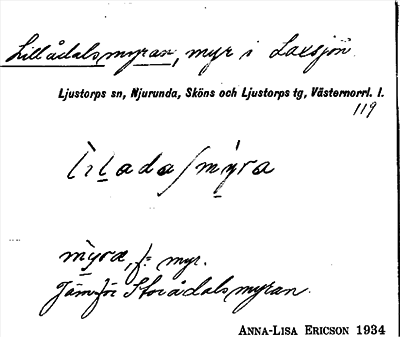 Lillådalsmyran, myr i Laxsjön.
Ljustorps sn, Njurunda, Sköns och Ljustorps tg, Västernorrl. l.
119
mỳra, f: myr.
Jämför Storådalsmyran.
ANNA-LISA ERICSON 1934